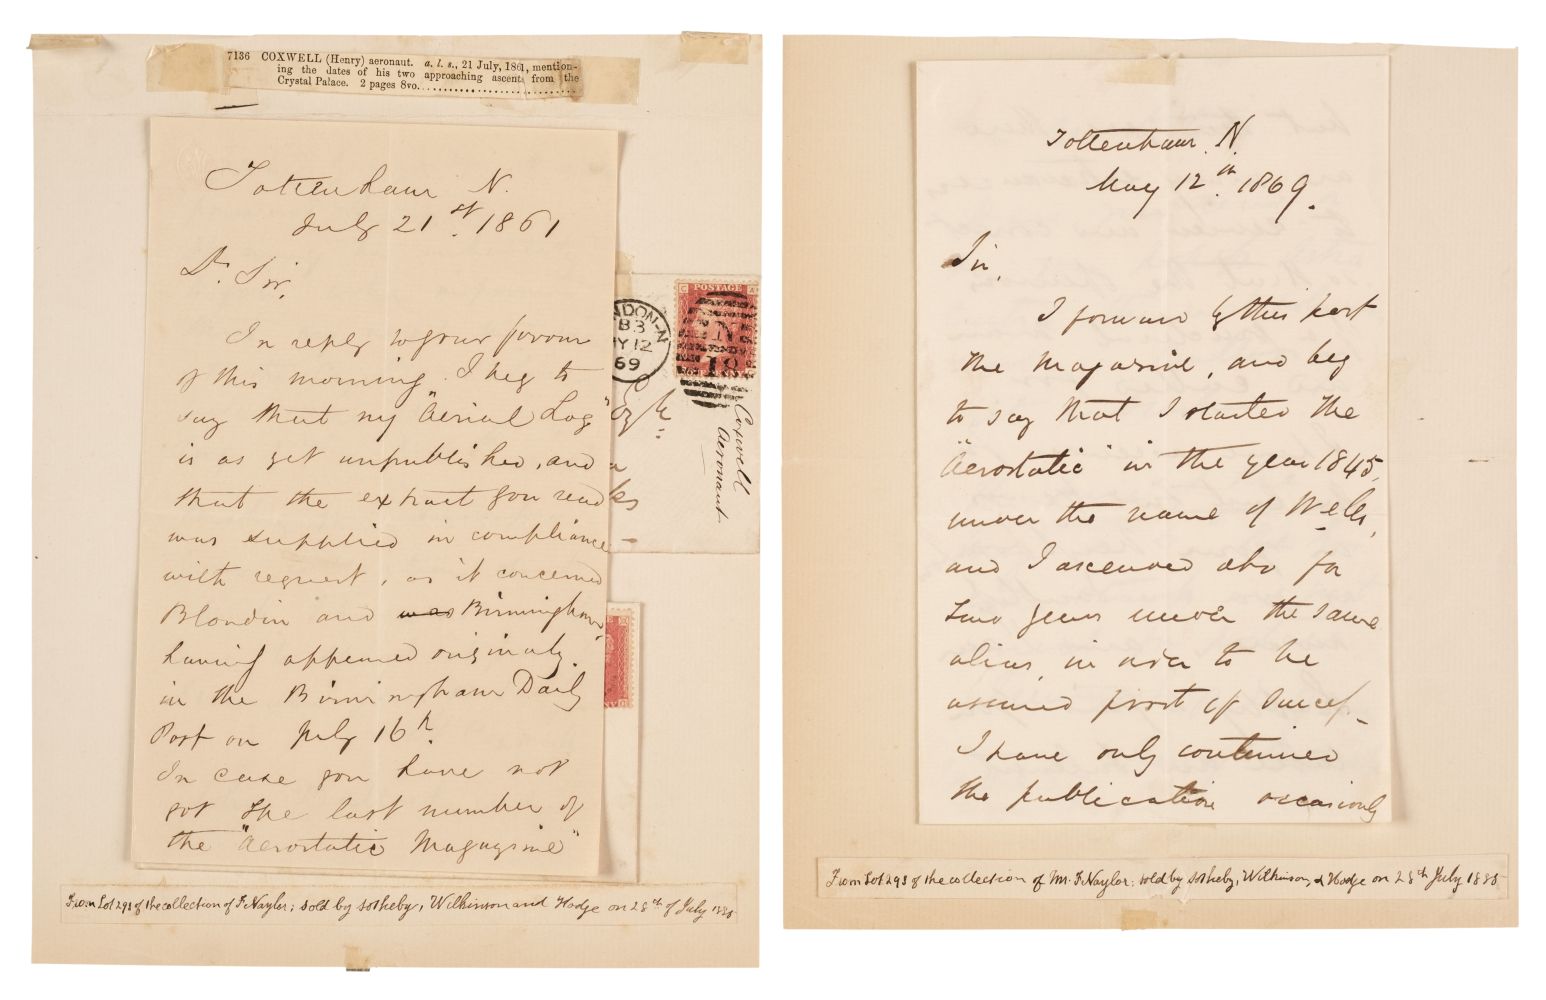 7136 COXWELL (Henry) aeronaut. a. l. s., 21 July, 1861, mention-
ing the dates of his two approaching ascents from the
Crystal Palace. 2 pages 8vo.
Tottenham N.
July 21st. 1861
Dr. Sir,
In reply to your favour
of this morning I beg to
say that my "Aerial Log"
is as yet unpublished, and
that the extract you read
was supplied in compliance
with request, as it concerned
Blondin and was Birmingham,
having appeared originally
in the Birmingham Daily
Post on July 16th.
In case you have not
got the last number of
the "Aerostatic Magazine"
NDON-N
B3
MY 12
69
POSTAGE
G A
N
18
Coxwell
Aeronaut
From Lot 293 of the collection of F. Naylor; sold by Sotheby, Wilkinson and Hodge on 28th of July 1885
Tottenham. N.
May 12th. 1869.
Sir,
I forward by this post
the Magazine, and beg
to say that I started the
"Aerostatic" in the year 1845,
under the name of Wells,
and I ascended also for
two years under the same
alias, in order to be
assured first of success.
I have only continued
the publication occasionly
From Lot 293 of the collection of Mr. F. Naylor: sold by Sotheby, Wilkinson, & Hodge on 28th July 1885